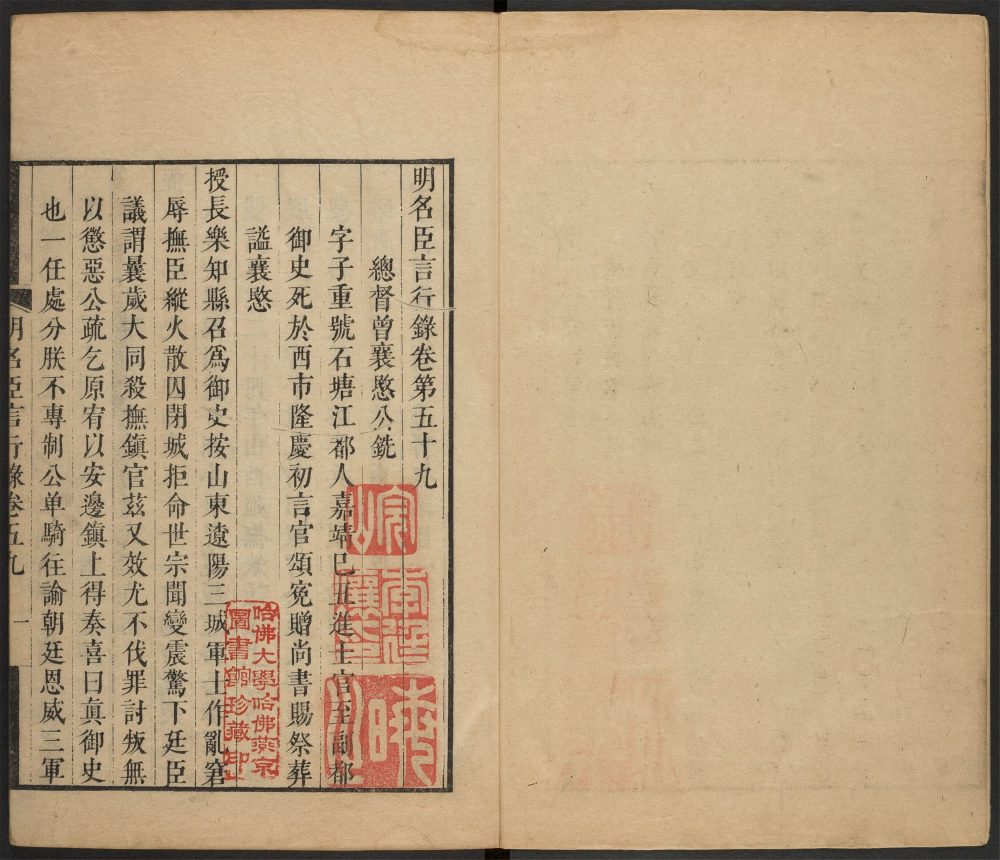 明名臣言行錄卷第五十九
總督曾襄愍公銑
字子重號石塘江都人嘉靖己丑進士官至副都
御史死於西市隆慶初言官頌寃贈尚書賜祭葬
謚襄愍
授長樂知縣召爲御史按山東遼陽三城軍士作亂窘
辱撫臣縱火散囚閉城拒命世宗聞變震驚下廷臣
議謂曩歲大同殺撫鎭官兹又效尤不伐罪討叛無
以懲惡公疏乞原宥以安邊鎭上得奏喜曰眞御史
也一任處分朕不專制公单騎往諭朝廷恩威三軍
明名臣言行錄卷五九
一
哈佛大學哈佛燕京
圖書館珍藏印